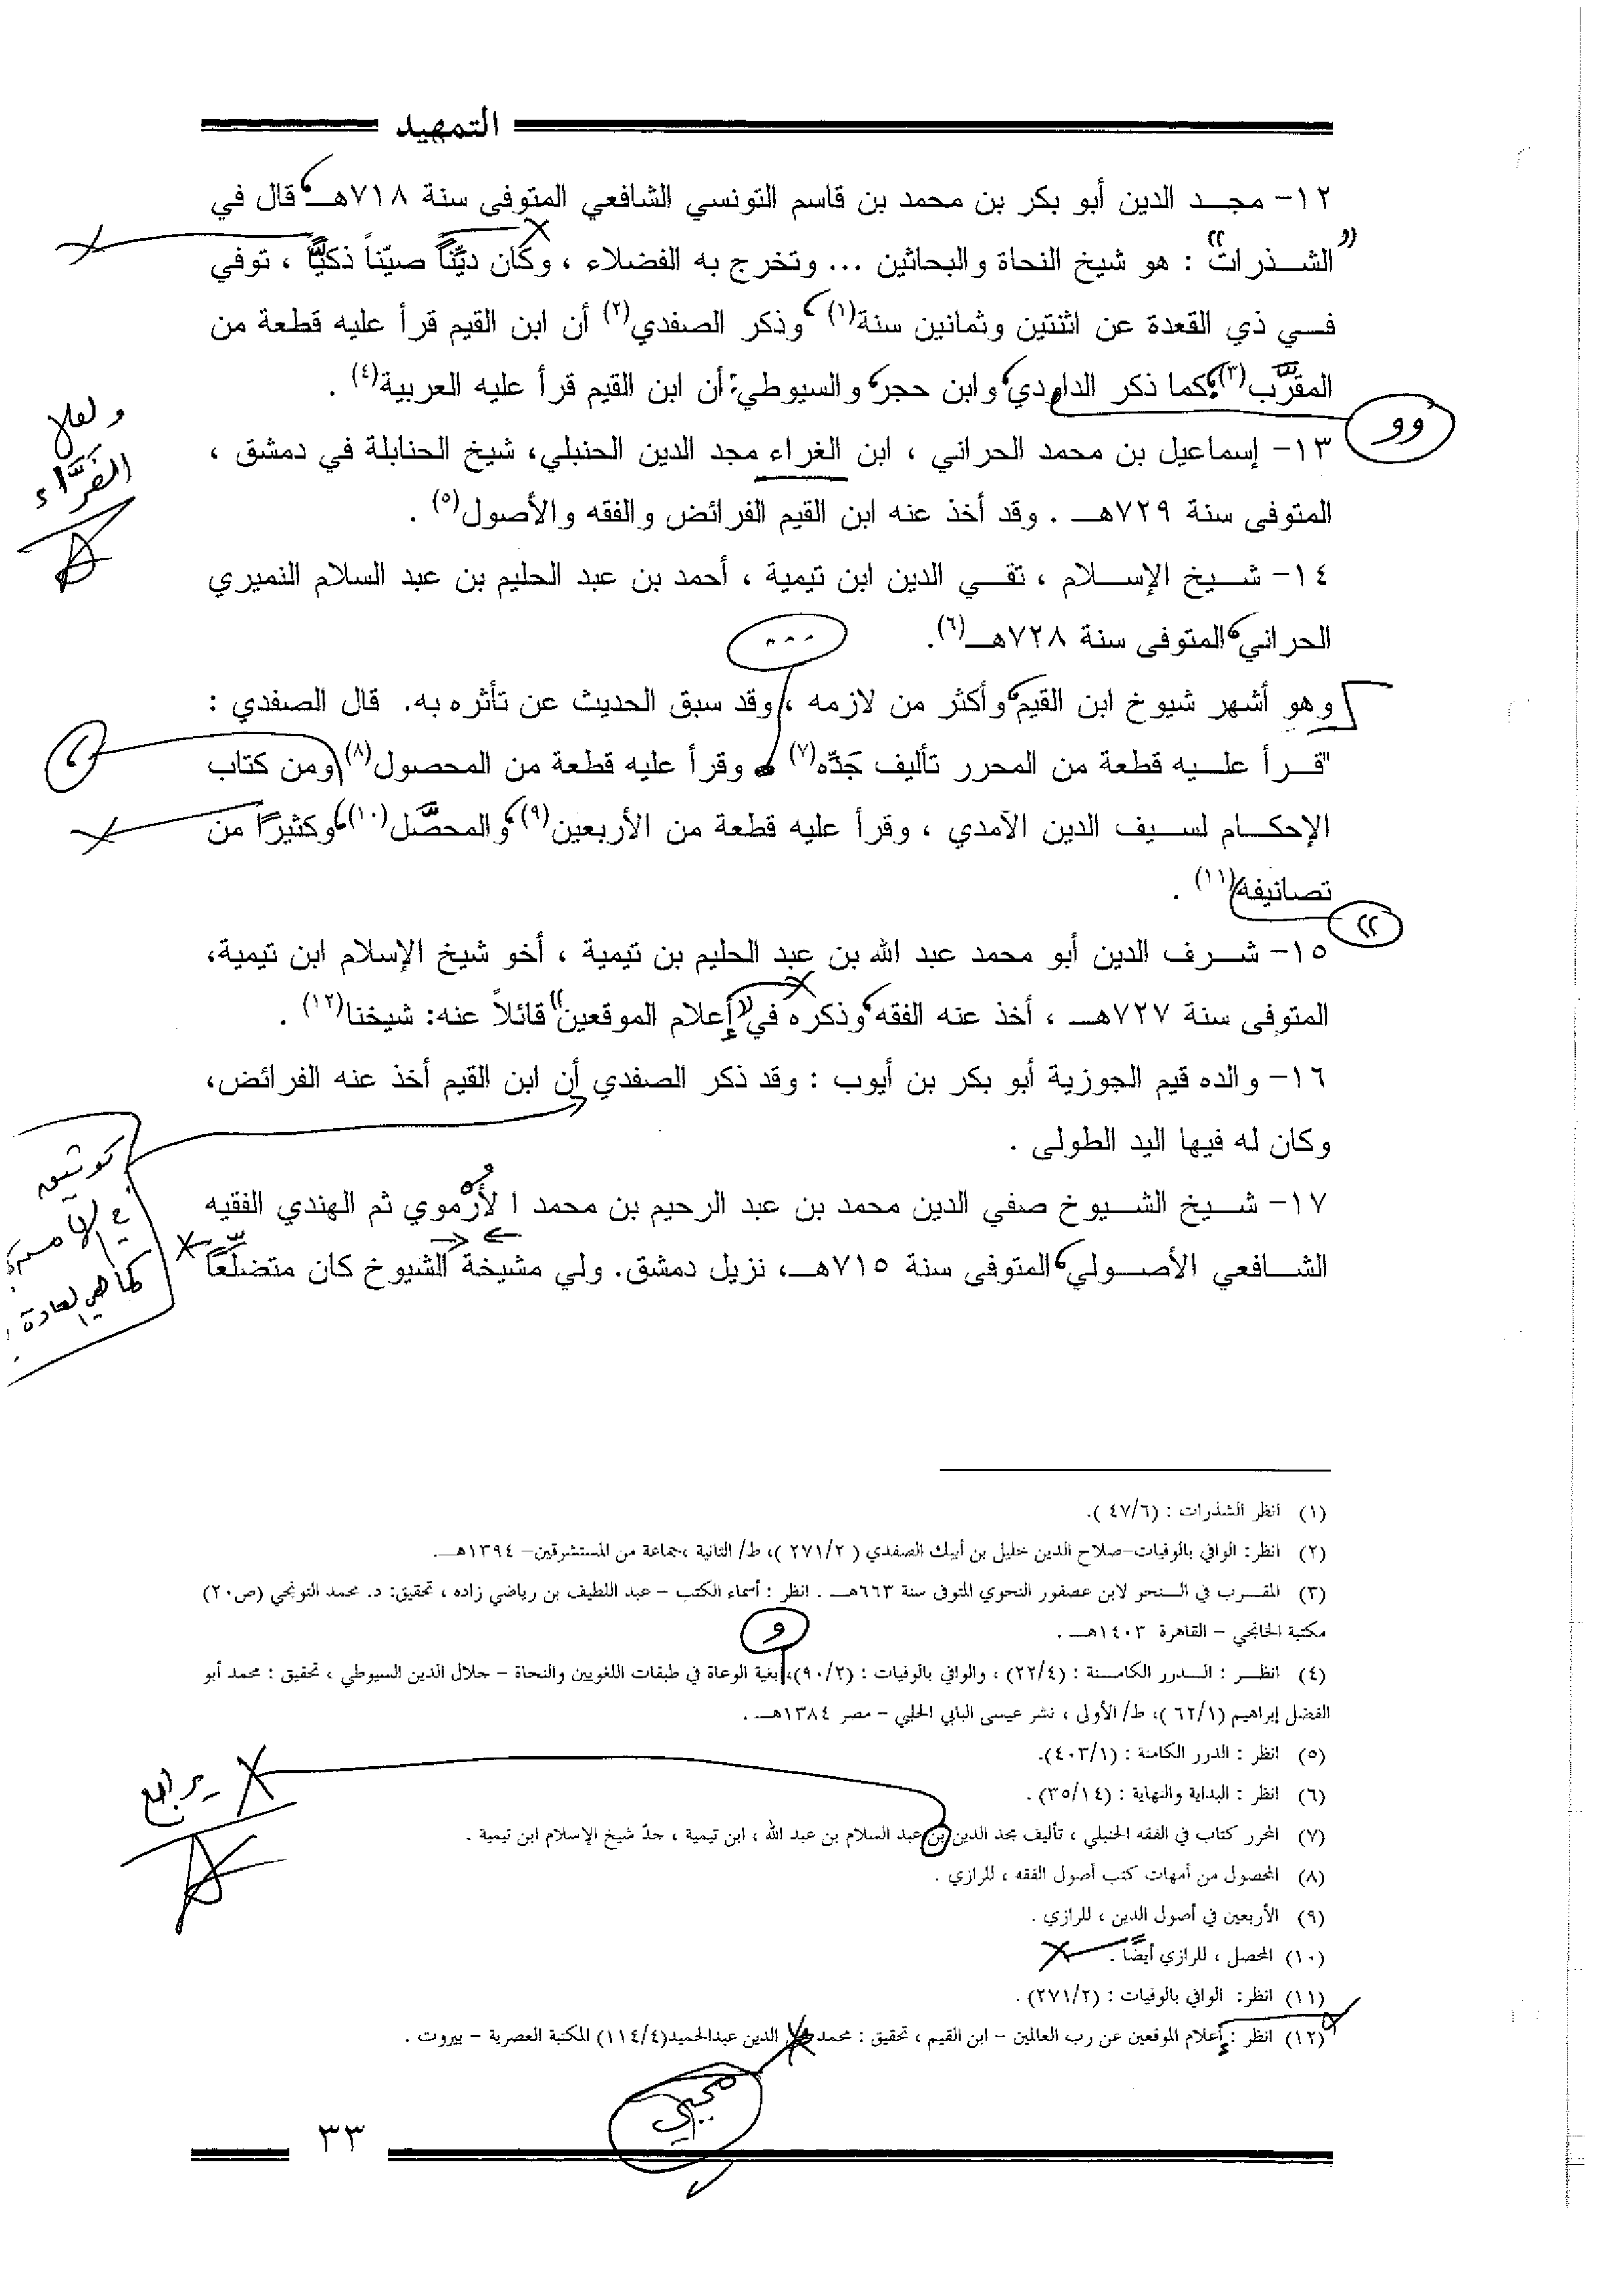 التمهيد
١٢- مجد الدين أبو بكر بن محمد بن قاسم التونسي الشافعي المتوفى سنة ٧١٨هـ، قال في
"الشذرات" : هو شيخ النحاة والبحاثين ... وتخرج به الفضلاء ، وكان ديّناً صيّناً ذكيّاً ، توفي
في ذي القعدة عن اثنتين وثمانين سنة(١)، وذكر الصفدي(٢) أن ابن القيم قرأ عليه قطعة من
المقرَّب(٣)، كما ذكر الداودي، وابن حجر، والسيوطي: أن ابن القيم قرأ عليه العربية(٤) .
وو
ولعلها
الفَرَّاء
١٣- إسماعيل بن محمد الحراني ، ابن الغراء مجد الدين الحنبلي، شيخ الحنابلة في دمشق ،
المتوفى سنة ٧٢٩هـ . وقد أخذ عنه ابن القيم الفرائض والفقه والأصول(٥) .
١٤- شيخ الإسلام ، تقي الدين ابن تيمية ، أحمد بن عبد الحليم بن عبد السلام النميري
الحراني، المتوفى سنة ٧٢٨هـ(٦).
...
وهو أشهر شيوخ ابن القيم، وأكثر من لازمه ، وقد سبق الحديث عن تأثره به. قال الصفدي :
"قرأ عليه قطعة من المحرر تأليف جَدّه(٧) ، وقرأ عليه قطعة من المحصول(٨) ومن كتاب
،
الإحكام لسيف الدين الآمدي ، وقرأ عليه قطعة من الأربعين(٩)، والمحصَّل(١٠)، وكثيرًا من
تصانيفه(١١) .
"
١٥- شرف الدين أبو محمد عبد الله بن عبد الحليم بن تيمية ، أخو شيخ الإسلام ابن تيمية،
المتوفى سنة ٧٢٧هـ ، أخذ عنه الفقه، وذكره في "إعلام الموقعين" قائلاً عنه: شيخنا(١٢) .
١٦- والده قيم الجوزية أبو بكر بن أيوب : وقد ذكر الصفدي أن ابن القيم أخذ عنه الفرائض،
وكان له فيها اليد الطولى .
توثيق
في الأسفل
كما هي لعادة
١٧- شيخ الشيوخ صفي الدين محمد بن عبد الرحيم بن محمد الأُرْموي ثم الهندي الفقيه
الشافعي الأصولي، المتوفى سنة ٧١٥هـ، نزيل دمشق. ولي مشيخة الشيوخ كان متضلّعاً
(١) انظر الشذرات : (٤٧/٦ ).
(٢) انظر: الوافي بالوفيات-صلاح الدين خليل بن أيبك الصفدي ( ٢٧١/٢ )، ط/ الثانية ،جماعة من المستشرقين- ١٣٩٤هـ.
(٣) المقرب في النحو لابن عصفور النحوي المتوفى سنة ٦٦٣هـ . انظر : أسماء الكتب - عبد اللطيف بن رياضي زاده ، تحقيق: د. محمد التونجي (ص٢٠)
مكتبة الخانجي - القاهرة ١٤٠٣هـ .
و
(٤) انظر : الدرر الكامنة : (٢٢/٤) ، والوافي بالوفيات : (٩٠/٢)، بغية الوعاة في طبقات اللغويين والنحاة - جلال الدين السيوطي ، تحقيق : محمد أبو
الفضل إبراهيم (٦٢/١ )، ط/ الأولى ، نشر عيسى البابي الحلبي - مصر ١٣٨٤هـ .
(٥) انظر : الدرر الكامنة : (٤٠٣/١).
(٦) انظر : البداية والنهاية : (٣٥/١٤) .
يراجع
(٧) المحرر كتاب في الفقه الحنبلي ، تأليف مجد الدين بن عبد السلام بن عبد الله ، ابن تيمية ، جدّ شيخ الإسلام ابن تيمية .
(٨) المحصول من أمهات كتب أصول الفقه ، للرازي .
(٩) الأربعين في أصول الدين ، للرازي .
(١٠) المحصل ، للرازي أيضًا .
(١١) انظر: الوافي بالوفيات : (٢٧١/٢) .
(١٢) انظر : إعلام الموقعين عن رب العالمين - ابن القيم ، تحقيق : محمد الدين عبدالحميد(١١٤/٤) المكتبة العصرية - بيروت .
محيي
٣٣